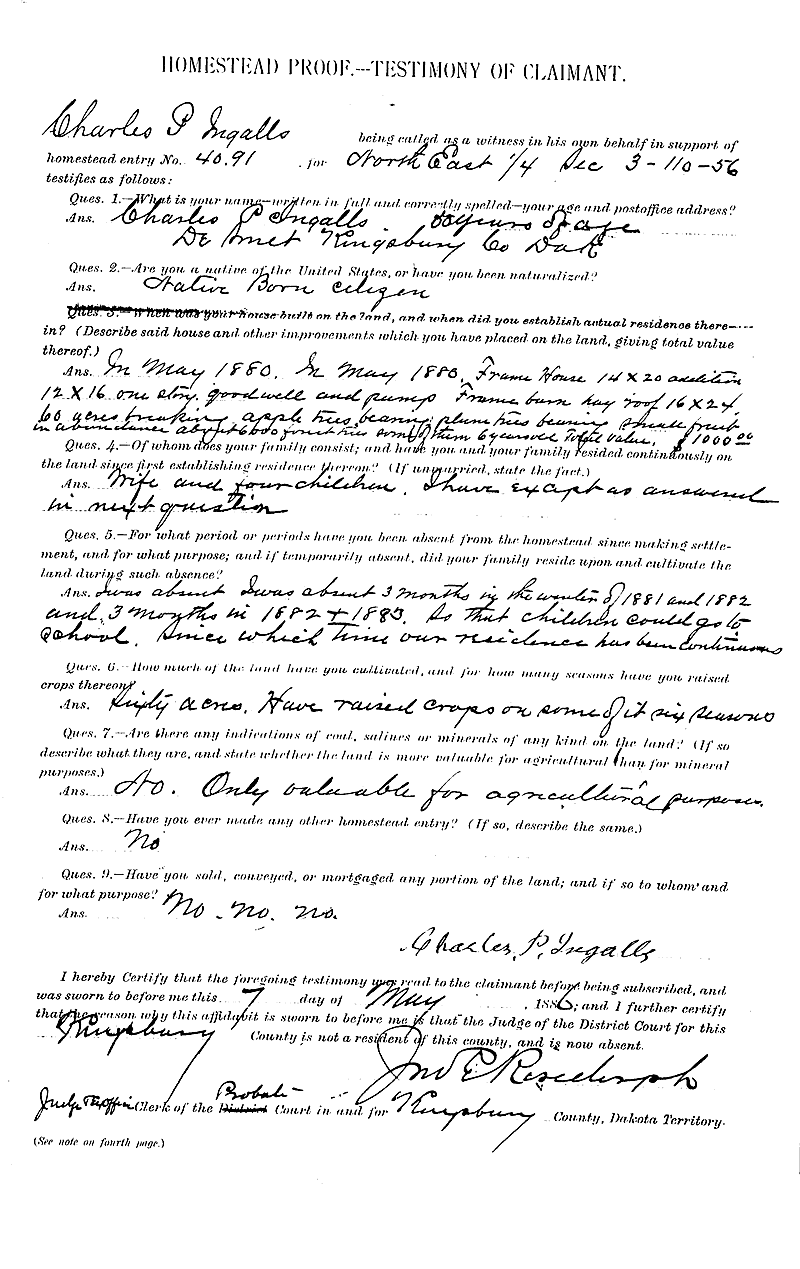 HOMESTEAD PROOF.---TESTIMONY OF CLAIMANT.
Charles P Ingalls being called as a witness in his own behalf in support of
homestead entry No. 4091 for North East 1/4 Sec 3-110-56
testifies as follows:
Ques. 1.—What is your name—written in full and correctly spelled—your age and postoffice address?
Ans. Charles P Ingalls. 50 years of age
De Smet Kingsbury Co Dak
Ques. 2.—Are you a native of the United States, or have you been naturalized?
Ans. Native Born citizen
Ques. 3.—When was your house built on the land, and when did you establish actual residence there-
in? (Describe said house and other improvements which you have placed on the land, giving total value
thereof.)
Ans. In May 1880. In May 1880. Frame House 14 X 20 addition
12 X 16 one story. good well and pump Frame barn hay roof 16 X 24.
60 acres breaking apple trees bearing plum trees bearing small fruit
in abundance about 6000 fruit trees some of them 6 years old Total value. $1000 00
Ques. 4.—Of whom does your family consist; and have you and your family resided continuously on
the land since first establishing residence thereon? (If unmarried, state the fact.)
Ans. Wife and four children. I have except as answered
in next question
Ques. 5.—For what period or periods have you been absent from the homestead since making settle-
ment, and for what purpose; and if temporarily absent, did your family reside upon and cultivate the
land during such absence?
Ans. I was absent I was absent 3 months in the winter of 1881 and 1882
and 3 months in 1882 + 1883. So that children could go to
school. Since which time our residence has been continuous
Ques. 6.—How much of the land have you cultivated, and for how many seasons have you raised
crops thereon?
Ans. Sixty acres. Have raised crops on some of it six seasons
Ques. 7.—Are there any indications of coal, salines or minerals of any kind on the land? (If so
describe what they are, and state whether the land is more valuable for agricultural than for mineral
purposes.)
Ans. No. Only valuable for agricultural purposes.
Ques. 8.—Have you ever made any other homestead entry? (If so, describe the same.)
Ans. No
Ques. 9.—Have you sold, conveyed, or mortgaged any portion of the land; and if so to whom and
for what purpose?
Ans. No. No. No.
Charles. P. Ingalls
I hereby Certify that the foregoing testimony was read to the claimant before being subscribed, and
was sworn to before me this 7 day of May, 1886; and I further certify
that the reason why this affidavit is sworn to before me is that the Judge of the District Court for this
Kingsbury County is not a resident of this county, and is now absent.
Probate
Clerk of the District Court in and for Kingsbury County, Dakota Territory.
(See note on fourth page.)